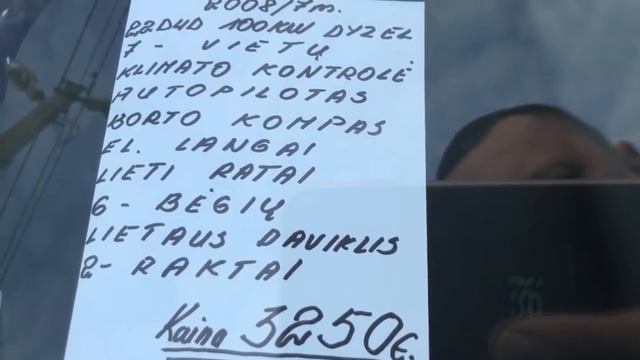 2008/7m.
22DUD 100KW DYZEL
7 - VIETŲ
KLIMATO KONTROLĖ
AUTOPILOTAS
BORTO KOMPAS
EL. LANGAI
LIETI RATAI
6 - BĖGIŲ
LIETAUS DAVIKLIS
2 - RAKTAI
Kaina 3250€.